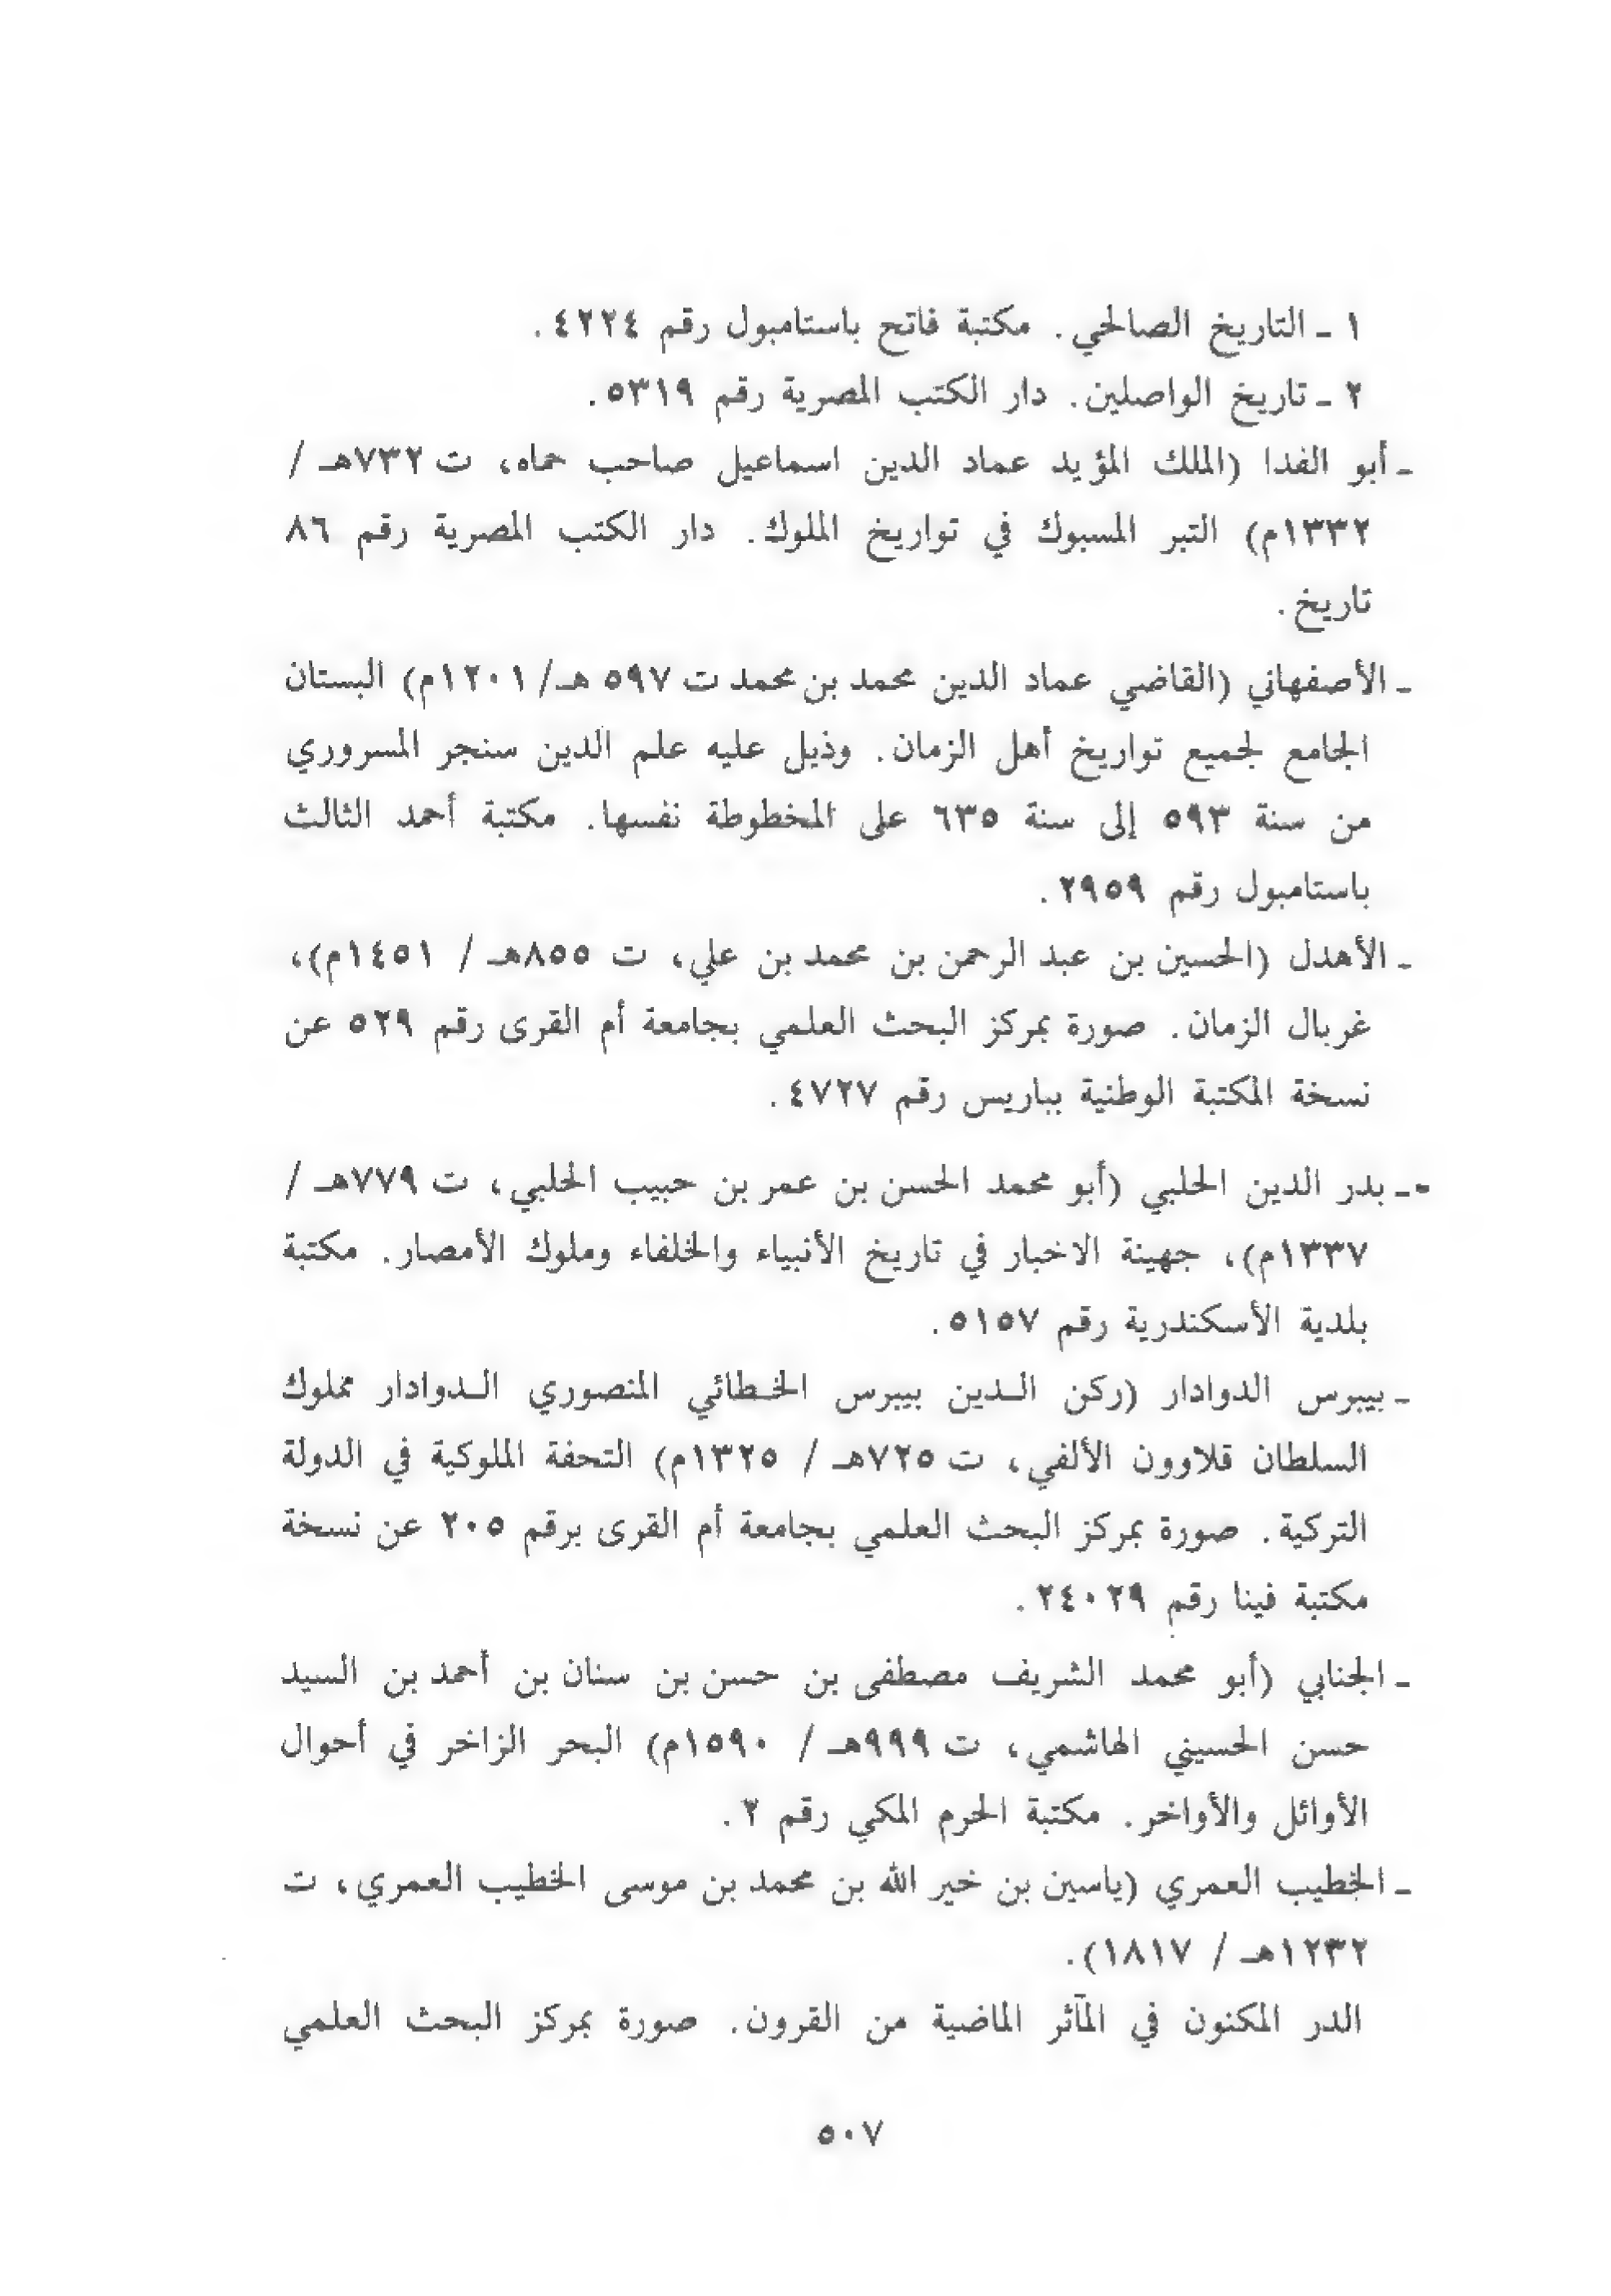 ١ ـ التاريخ الصالحي. مكتبة فاتح باستامبول رقم ٤٢٢٤.
٢ ـ تاريخ الواصلين. دار الكتب المصرية رقم ٥٣١٩.
ـ أبو الفدا (الملك المؤيد عماد الدين اسماعيل صاحب حماه، ت ٧٣٢هـ /
١٣٣٢م) التبر المسبوك في تواريخ الملوك. دار الكتب المصرية رقم ٨٦
تاريخ.
ـ الأصفهاني (القاضي عماد الدين محمد بن محمد ت ٥٩٧ هـ/ ١٢٠١م) البستان
الجامع لجميع تواريخ أهل الزمان. وذيل عليه علم الدين سنجر المسروري
من سنة ٥٩٣ إلى سنة ٦٣٥ على المخطوطة نفسها. مكتبة أحمد الثالث
باستامبول رقم ٢٩٥٩.
ـ الأهدل (الحسين بن عبد الرحمن بن محمد بن علي، ت ٨٥٥هـ / ١٤٥١م)،
غربال الزمان. صورة بمركز البحث العلمي بجامعة أم القرى رقم ٥٢٩ عن
نسخة المكتبة الوطنية بباريس رقم ٤٧٢٧.
ـ بدر الدين الحلبي (أبو محمد الحسن بن عمر بن حبيب الحلبي، ت ٧٧٩هـ /
١٣٣٧م)، جهينة الاخبار في تاريخ الأنبياء والخلفاء وملوك الأمصار. مكتبة
بلدية الأسكندرية رقم ٥١٥٧.
ـ بيبرس الدوادار (ركن الـدين بيبرس الخـطائي المنصوري الـدوادار مملوك
السلطان قلاوون الألفي، ت ٧٢٥هـ / ١٣٢٥م) التحفة الملوكية في الدولة
التركية. صورة بمركز البحث العلمي بجامعة أم القرى برقم ٢٠٥ عن نسخة
مكتبة فينا رقم ٢٤٠٢٩.
ـ الجنابي (أبو محمد الشريف مصطفى بن حسن بن سنان بن أحمد بن السيد
حسن الحسيني الهاشمي، ت ٩٩٩هـ / ١٥٩٠م) البحر الزاخر في أحوال
الأوائل والأواخر. مكتبة الحرم المكي رقم ٢.
ـ الخطيب العمري (ياسين بن خير الله بن محمد بن موسى الخطيب العمري، ت
١٢٣٢هـ / ١٨١٧).
الدر المكنون في المآثر الماضية من القرون. صورة بمركز البحث العلمي
٥٠٧